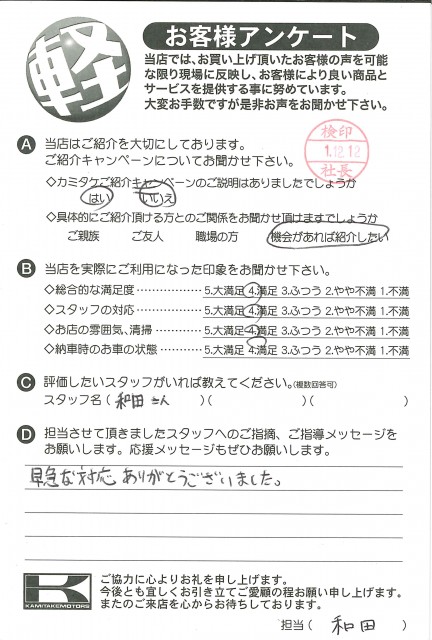 軽
お客様アンケート
当店では、お買い上げ頂いたお客様の声を可能
な限り現場に反映し、お客様により良い商品と
サービスを提供する事に努めています。
大変お手数ですが是非お声をお聞かせ下さい。
検印
1.12.12
社長
A 当店はご紹介を大切にしております。
ご紹介キャンペーンについてお聞かせ下さい。
◇カミタケご紹介キャンペーンのご説明はありましたでしょうか
はい いいえ
◇具体的にご紹介頂ける方とのご関係をお聞かせ頂けますでしょうか
ご親族 ご友人 職場の方 機会があれば紹介したい
B 当店を実際にご利用になった印象をお聞かせ下さい。
◇総合的な満足度 ……………… 5.大満足 4.満足 3.ふつう 2.やや不満 1.不満
◇スタッフの対応 ……………… 5.大満足 4.満足 3.ふつう 2.やや不満 1.不満
◇お店の雰囲気、清掃 ………… 5.大満足 4.満足 3.ふつう 2.やや不満 1.不満
◇納車時のお車の状態 ………… 5.大満足 4.満足 3.ふつう 2.やや不満 1.不満
C 評価したいスタッフがいれば教えてください。(複数回答可)
スタッフ名 ( 和田さん )( )( )
D 担当させて頂きましたスタッフへのご指摘、ご指導メッセージを
お願いします。応援メッセージもぜひお願いします。
早急な対応 ありがとうございました。
K
KAMITAKEMOTORS
ご協力に心よりお礼を申し上げます。
今後とも宜しくお引き立てご愛顧の程お願い申し上げます。
またのご来店を心からお待ちしております。
担当 ( 和田 )